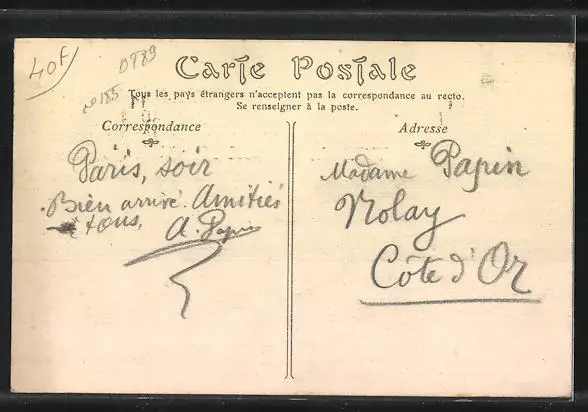 40F
DT89
n° 185
Carte Postale
Tous les pays étrangers n'acceptent pas la correspondance au recto.
Se renseigner à la poste.
Correspondance
Paris, soir
Bien arrivé. Amitiés
à tous,
A. Papin
Adresse
Madame Papin
Nolay
Côte d'Or